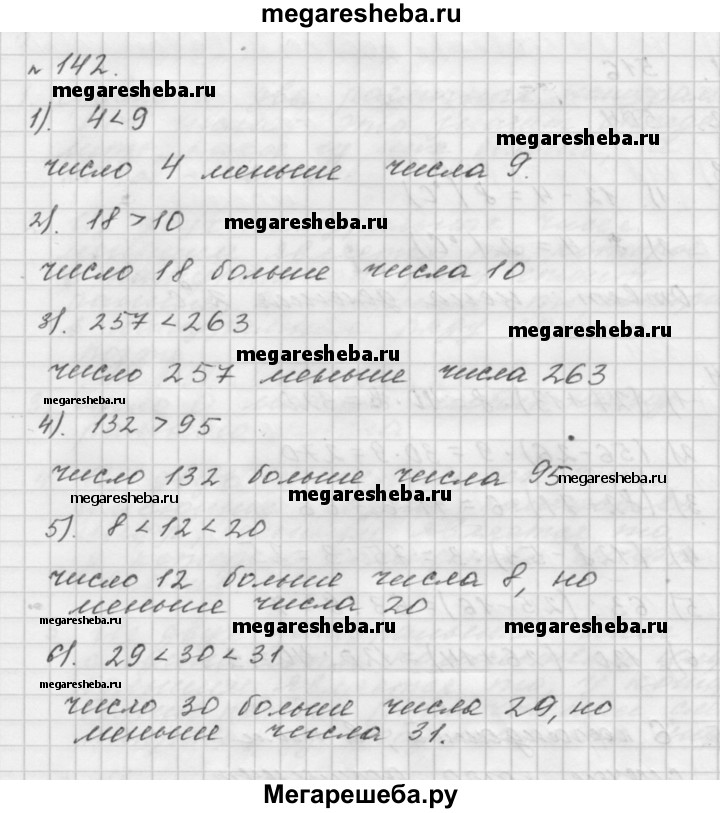 megaresheba.ru
№ 142.
megaresheba.ru
1). 4 < 9
megaresheba.ru
число 4 меньше числа 9.
2). 18 > 10 megaresheba.ru
число 18 больше числа 10
3). 257 < 263
megaresheba.ru
megaresheba.ru
число 257 меньше числа 263
megaresheba.ru
4). 132 > 95
число 132 больше числа 95
megaresheba.ru
megaresheba.ru
megaresheba.ru
5). 8 < 12 < 20
число 12 больше числа 8, но
меньше числа 20
megaresheba.ru
megaresheba.ru
megaresheba.ru
6). 29 < 30 < 31
megaresheba.ru
число 30 больше числа 29, но
меньше числа 31.
Мегарешеба.ру